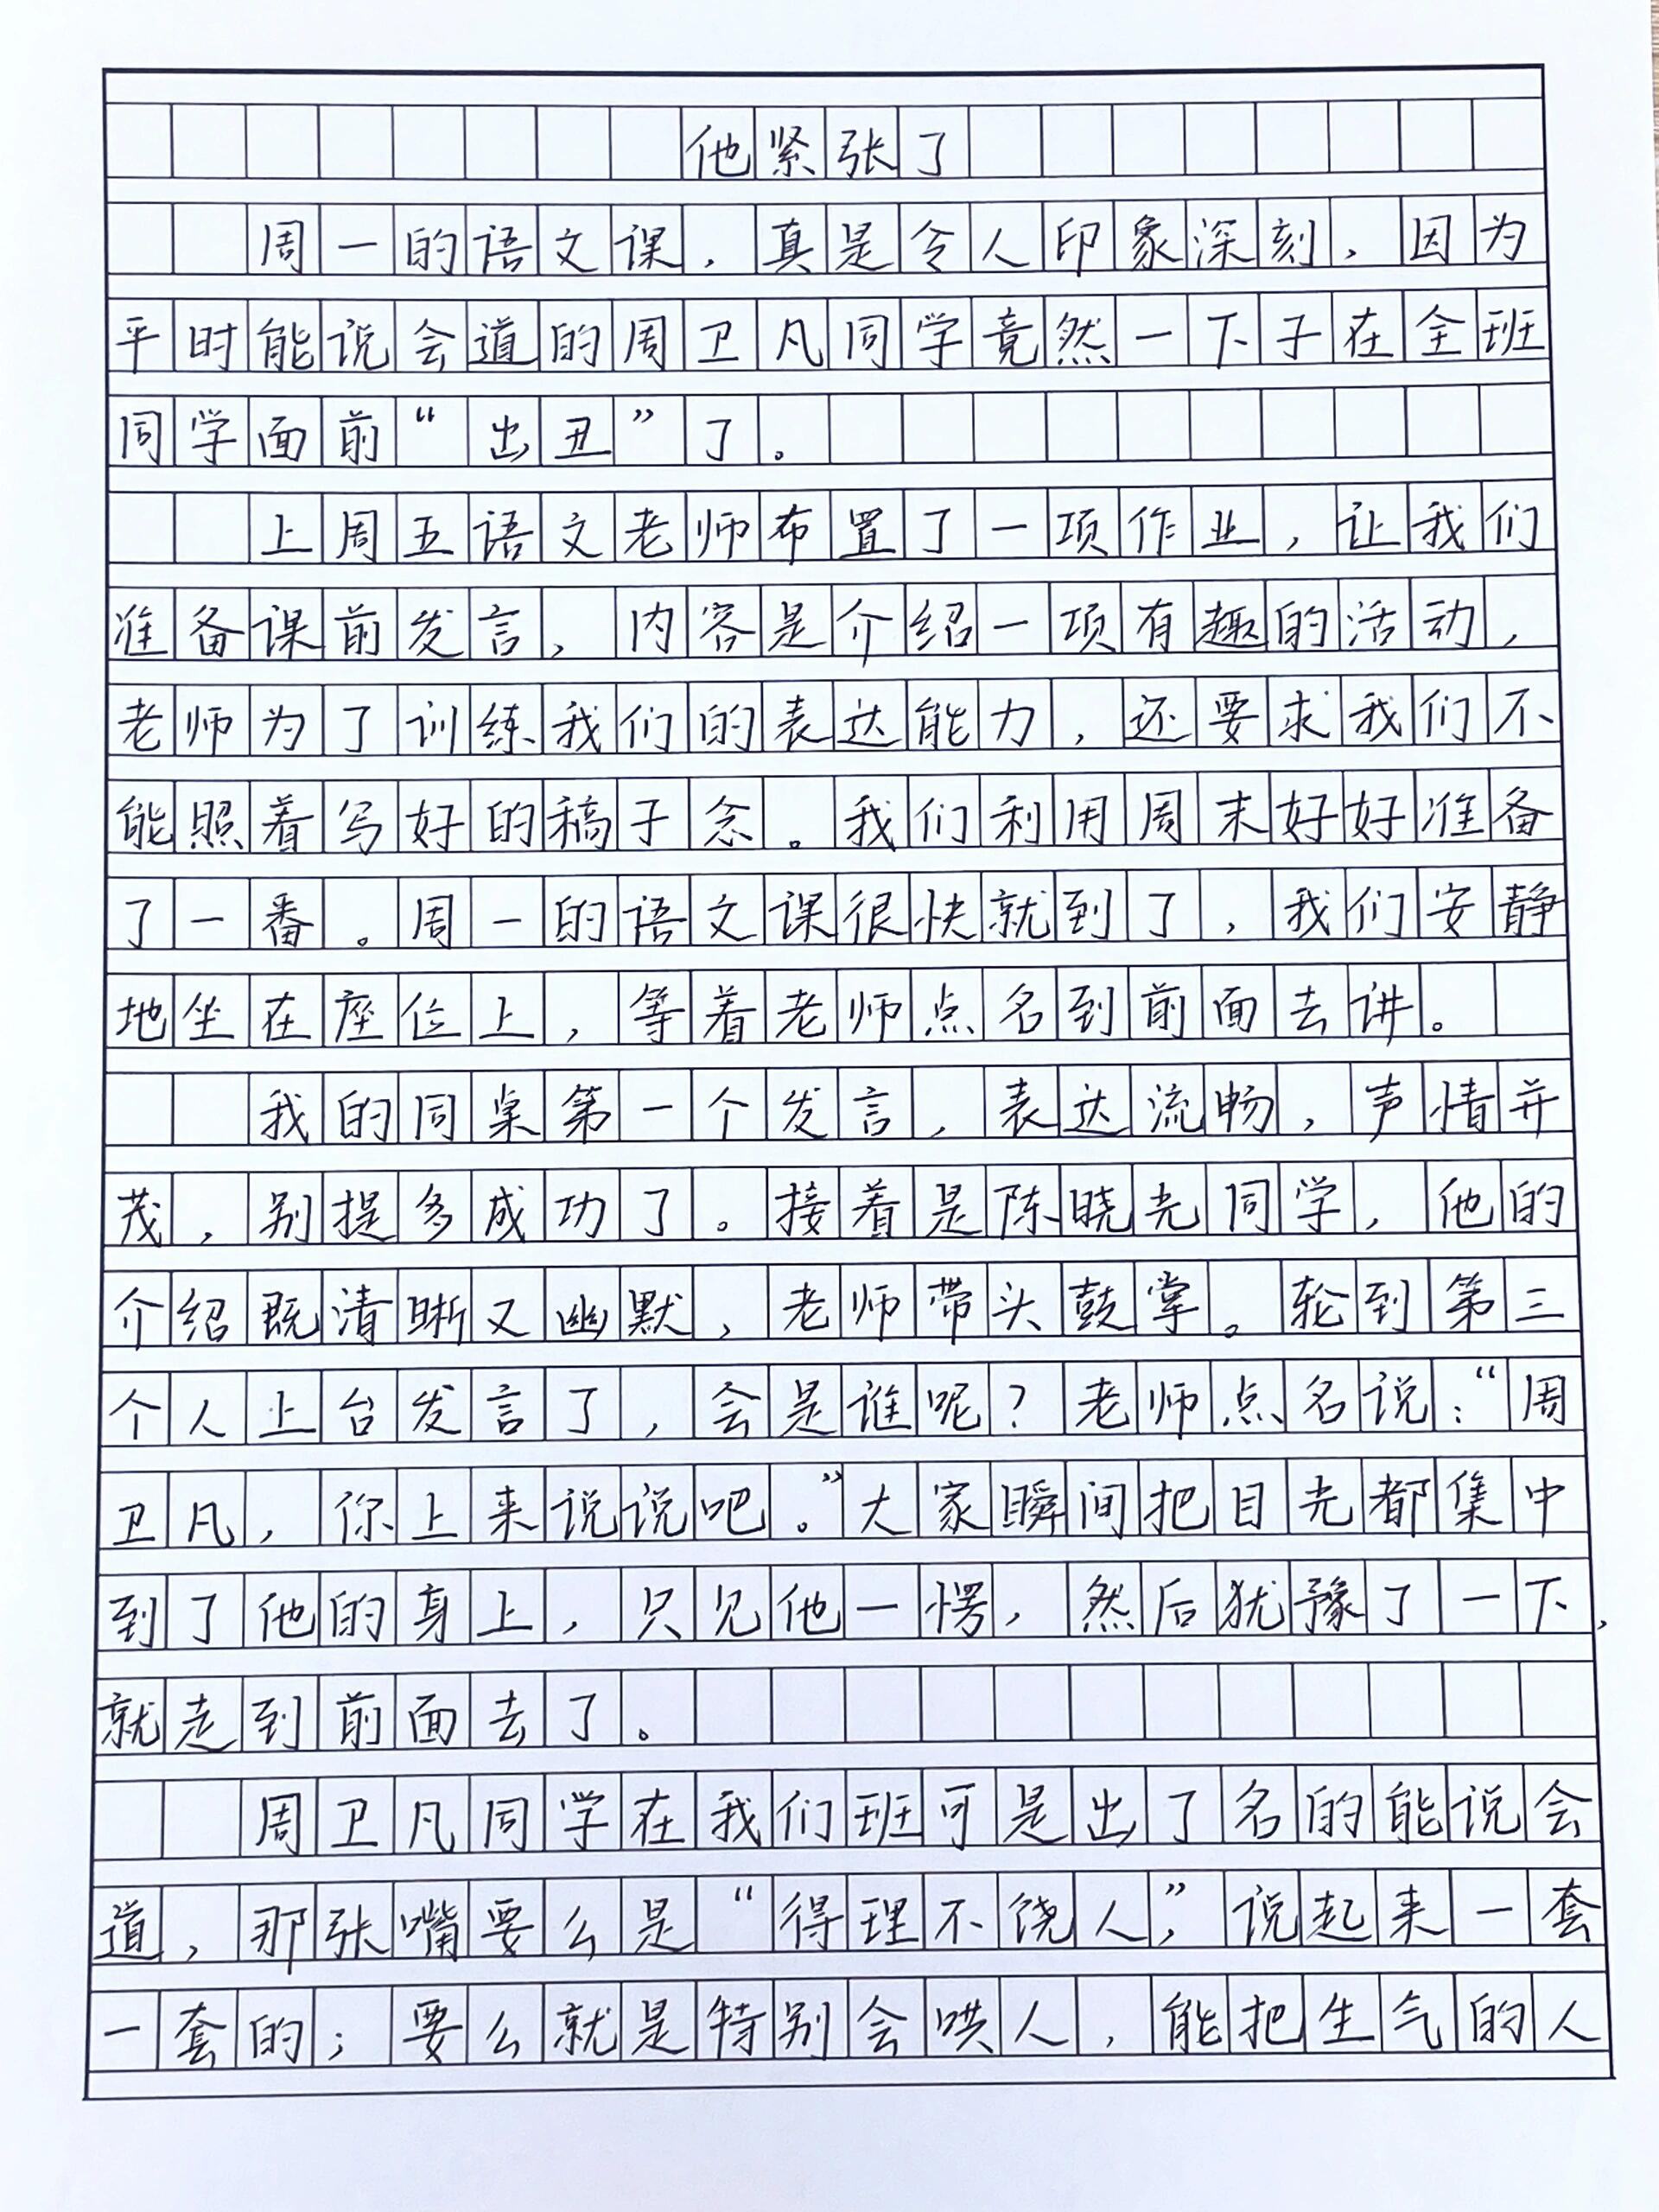 他紧张了
周一的语文课，真是令人印象深刻，因为
平时能说会道的周卫凡同学竟然一下子在全班
同学面前“出丑”了。
上周五语文老师布置了一项作业，让我们
准备课前发言，内容是介绍一项有趣的活动，
老师为了训练我们的表达能力，还要求我们不
能照着写好的稿子念。我们利用周末好好准备
了一番。周一的语文课很快就到了，我们安静
地坐在座位上，等着老师点名到前面去讲。
我的同桌第一个发言，表达流畅，声情并
茂，别提多成功了。接着是陈晓光同学，他的
介绍既清晰又幽默，老师带头鼓掌。轮到第三
个人上台发言了，会是谁呢？老师点名说：“周
卫凡，你上来说说吧。”大家瞬间把目光都集中
到了他的身上，只见他一愣，然后犹豫了一下，
就走到前面去了。
周卫凡同学在我们班可是出了名的能说会
道，那张嘴要么是“得理不饶人”，说起来一套
一套的；要么就是特别会哄人，能把生气的人